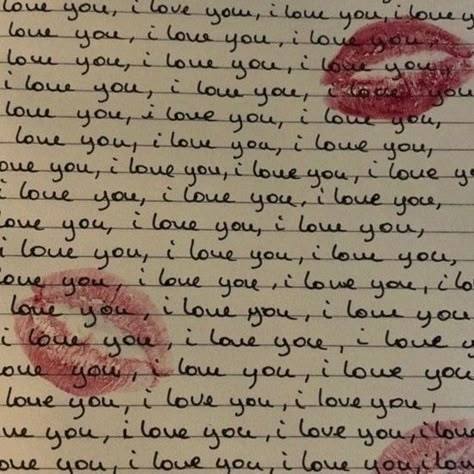 love you, i love you, i love you, i love you
love you, i love you, i love you
love you, i love you, i love you,
i love you, i love you, i love you
love you, i love you, i love you,
love you, i love you, i love you,
love you, i love you, i love you, i love y
i love you, i love you, i love you,
love you, i love you, i love you,
i love you, i love you, i love you,
love you, i love you, i love you, i lo
love you, i love you, i love you
i love you, i love you, i love y
love you, i love you, i love you
love you, i love you, i love you,
you, i love you, i love you, i love
you, i love you, i love you, i love